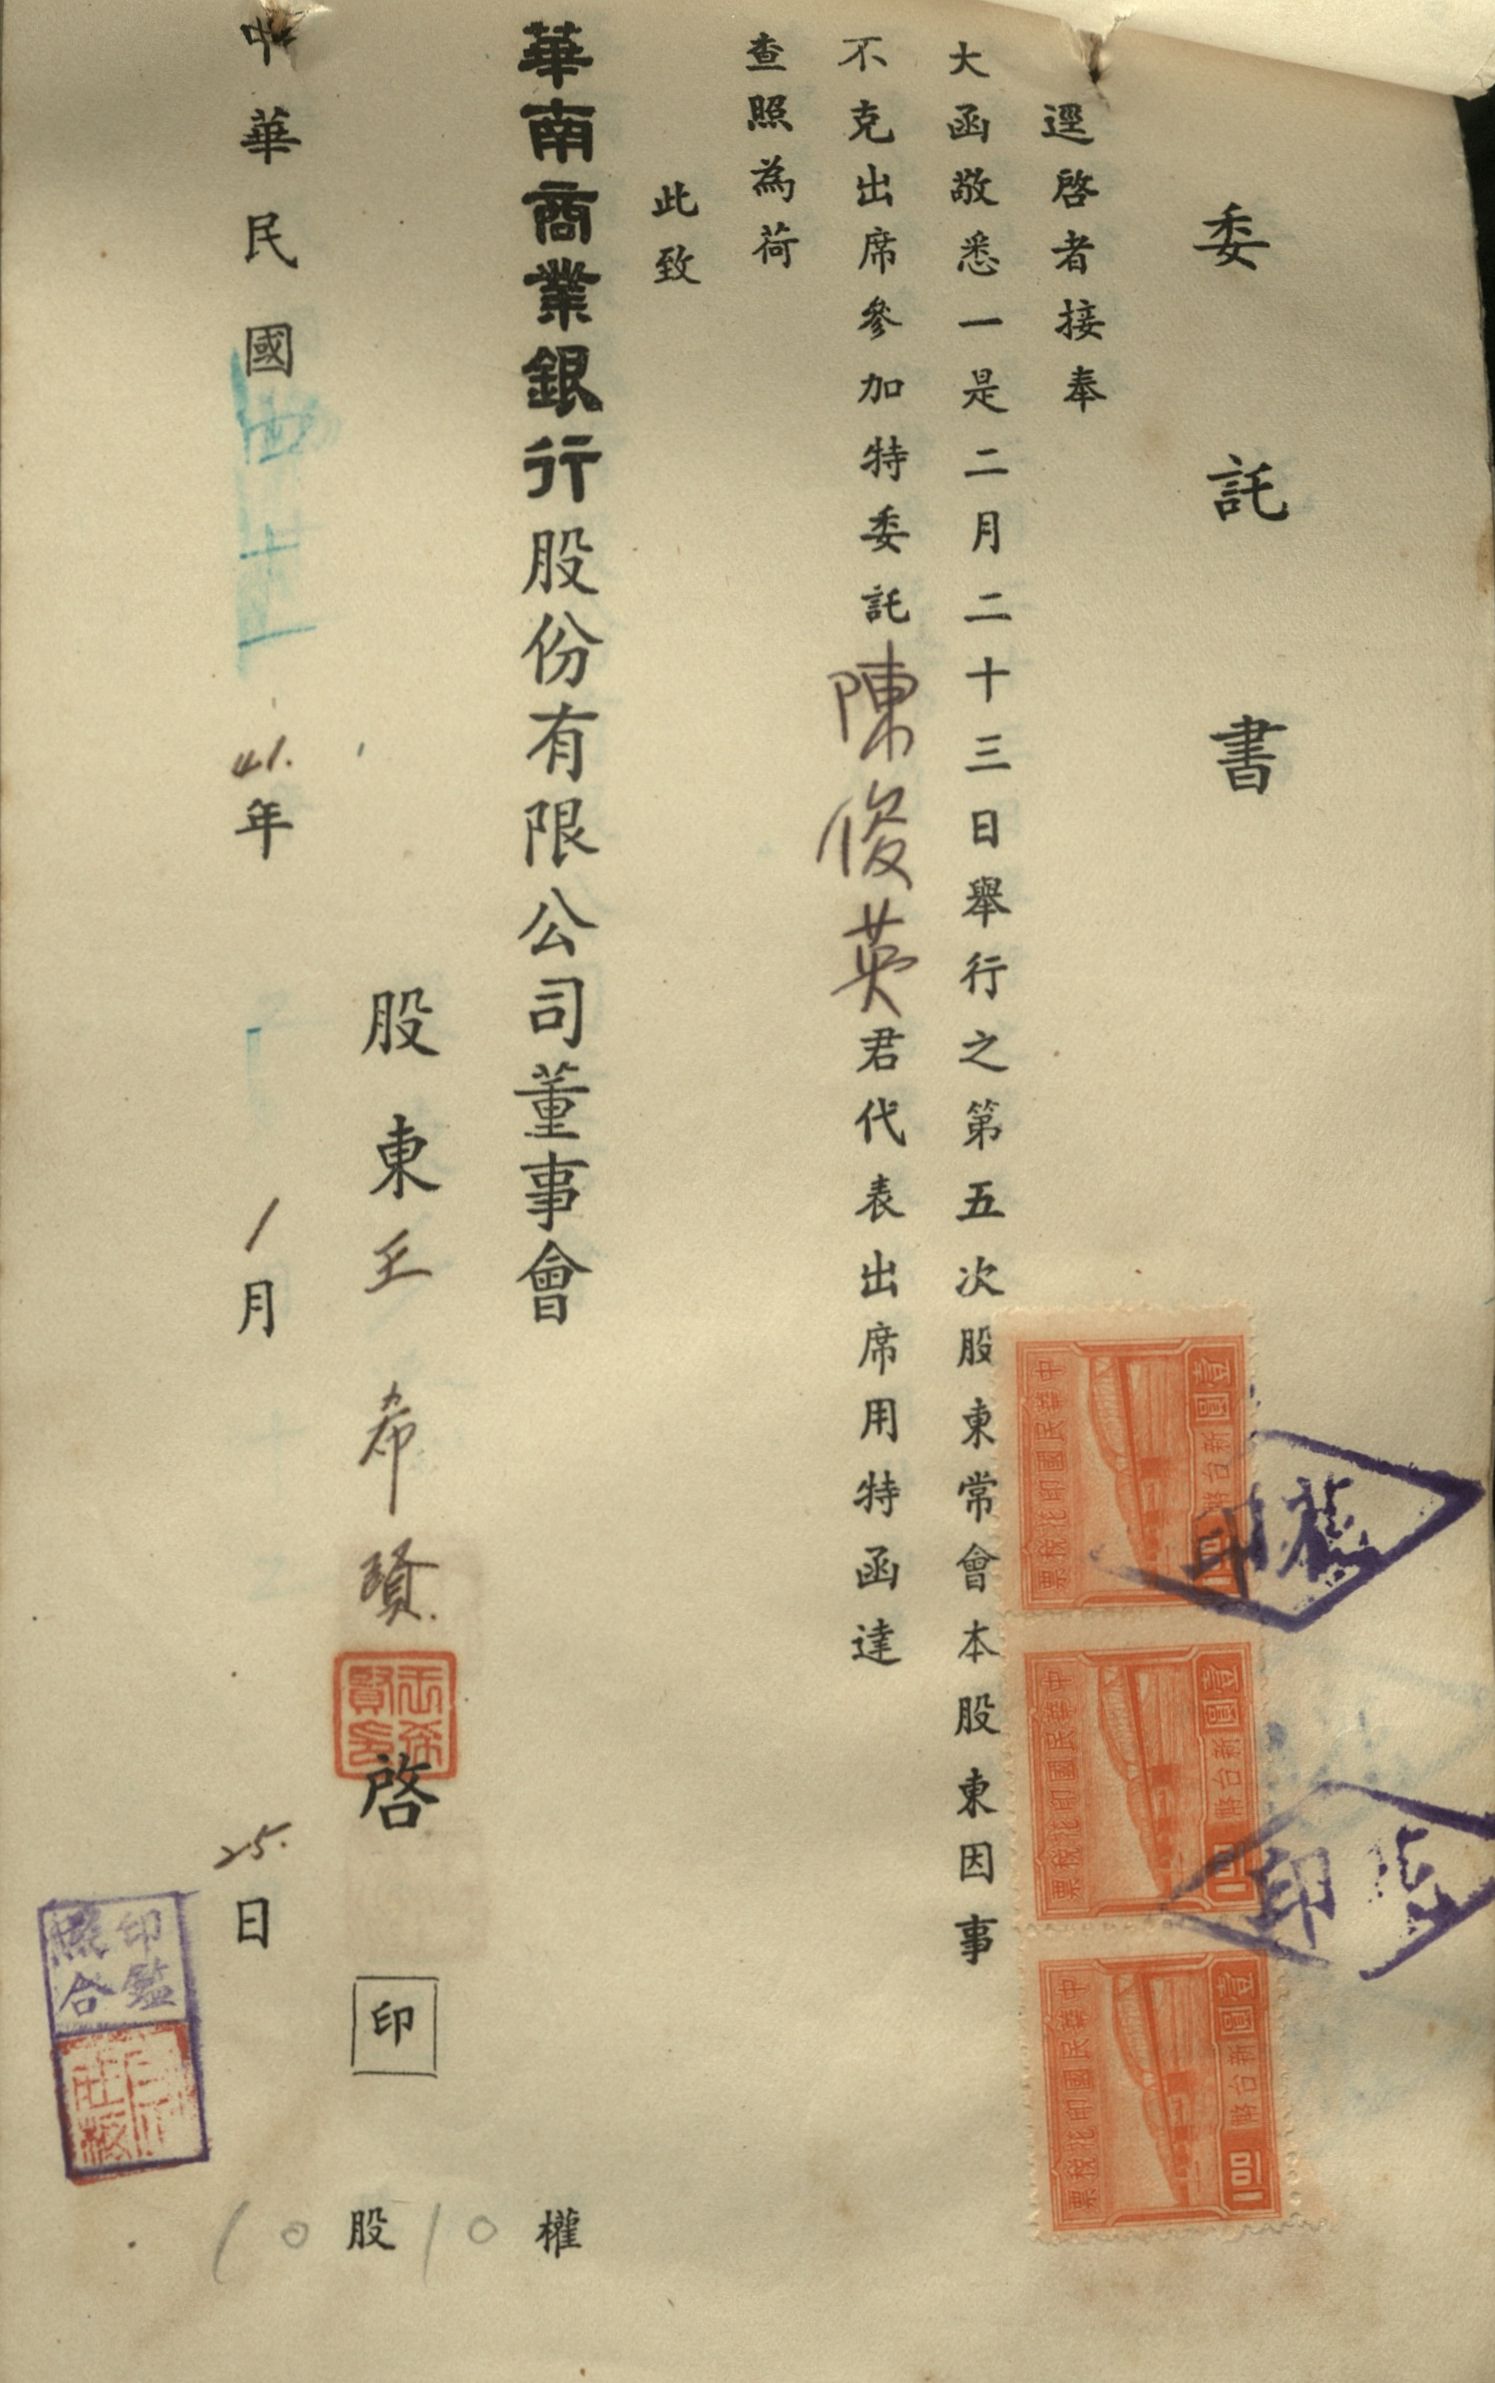 委託書
逕啓者接奉
大函敬悉一是二月二十三日舉行之第五次股東常會本股東因事
不克出席參加特委託陳俊英君代表出席用特函達
查照為荷
此致
華南商業銀行股份有限公司董事會
股東王希賢啓 印
10股10權
中華民國41.年1月25.日
王希賢印
印鑑
照合
壹圓新台幣1.00
中華民國印花稅票
壹圓新台幣1.00
中華民國印花稅票
壹圓新台幣1.00
中華民國印花稅票
印
印